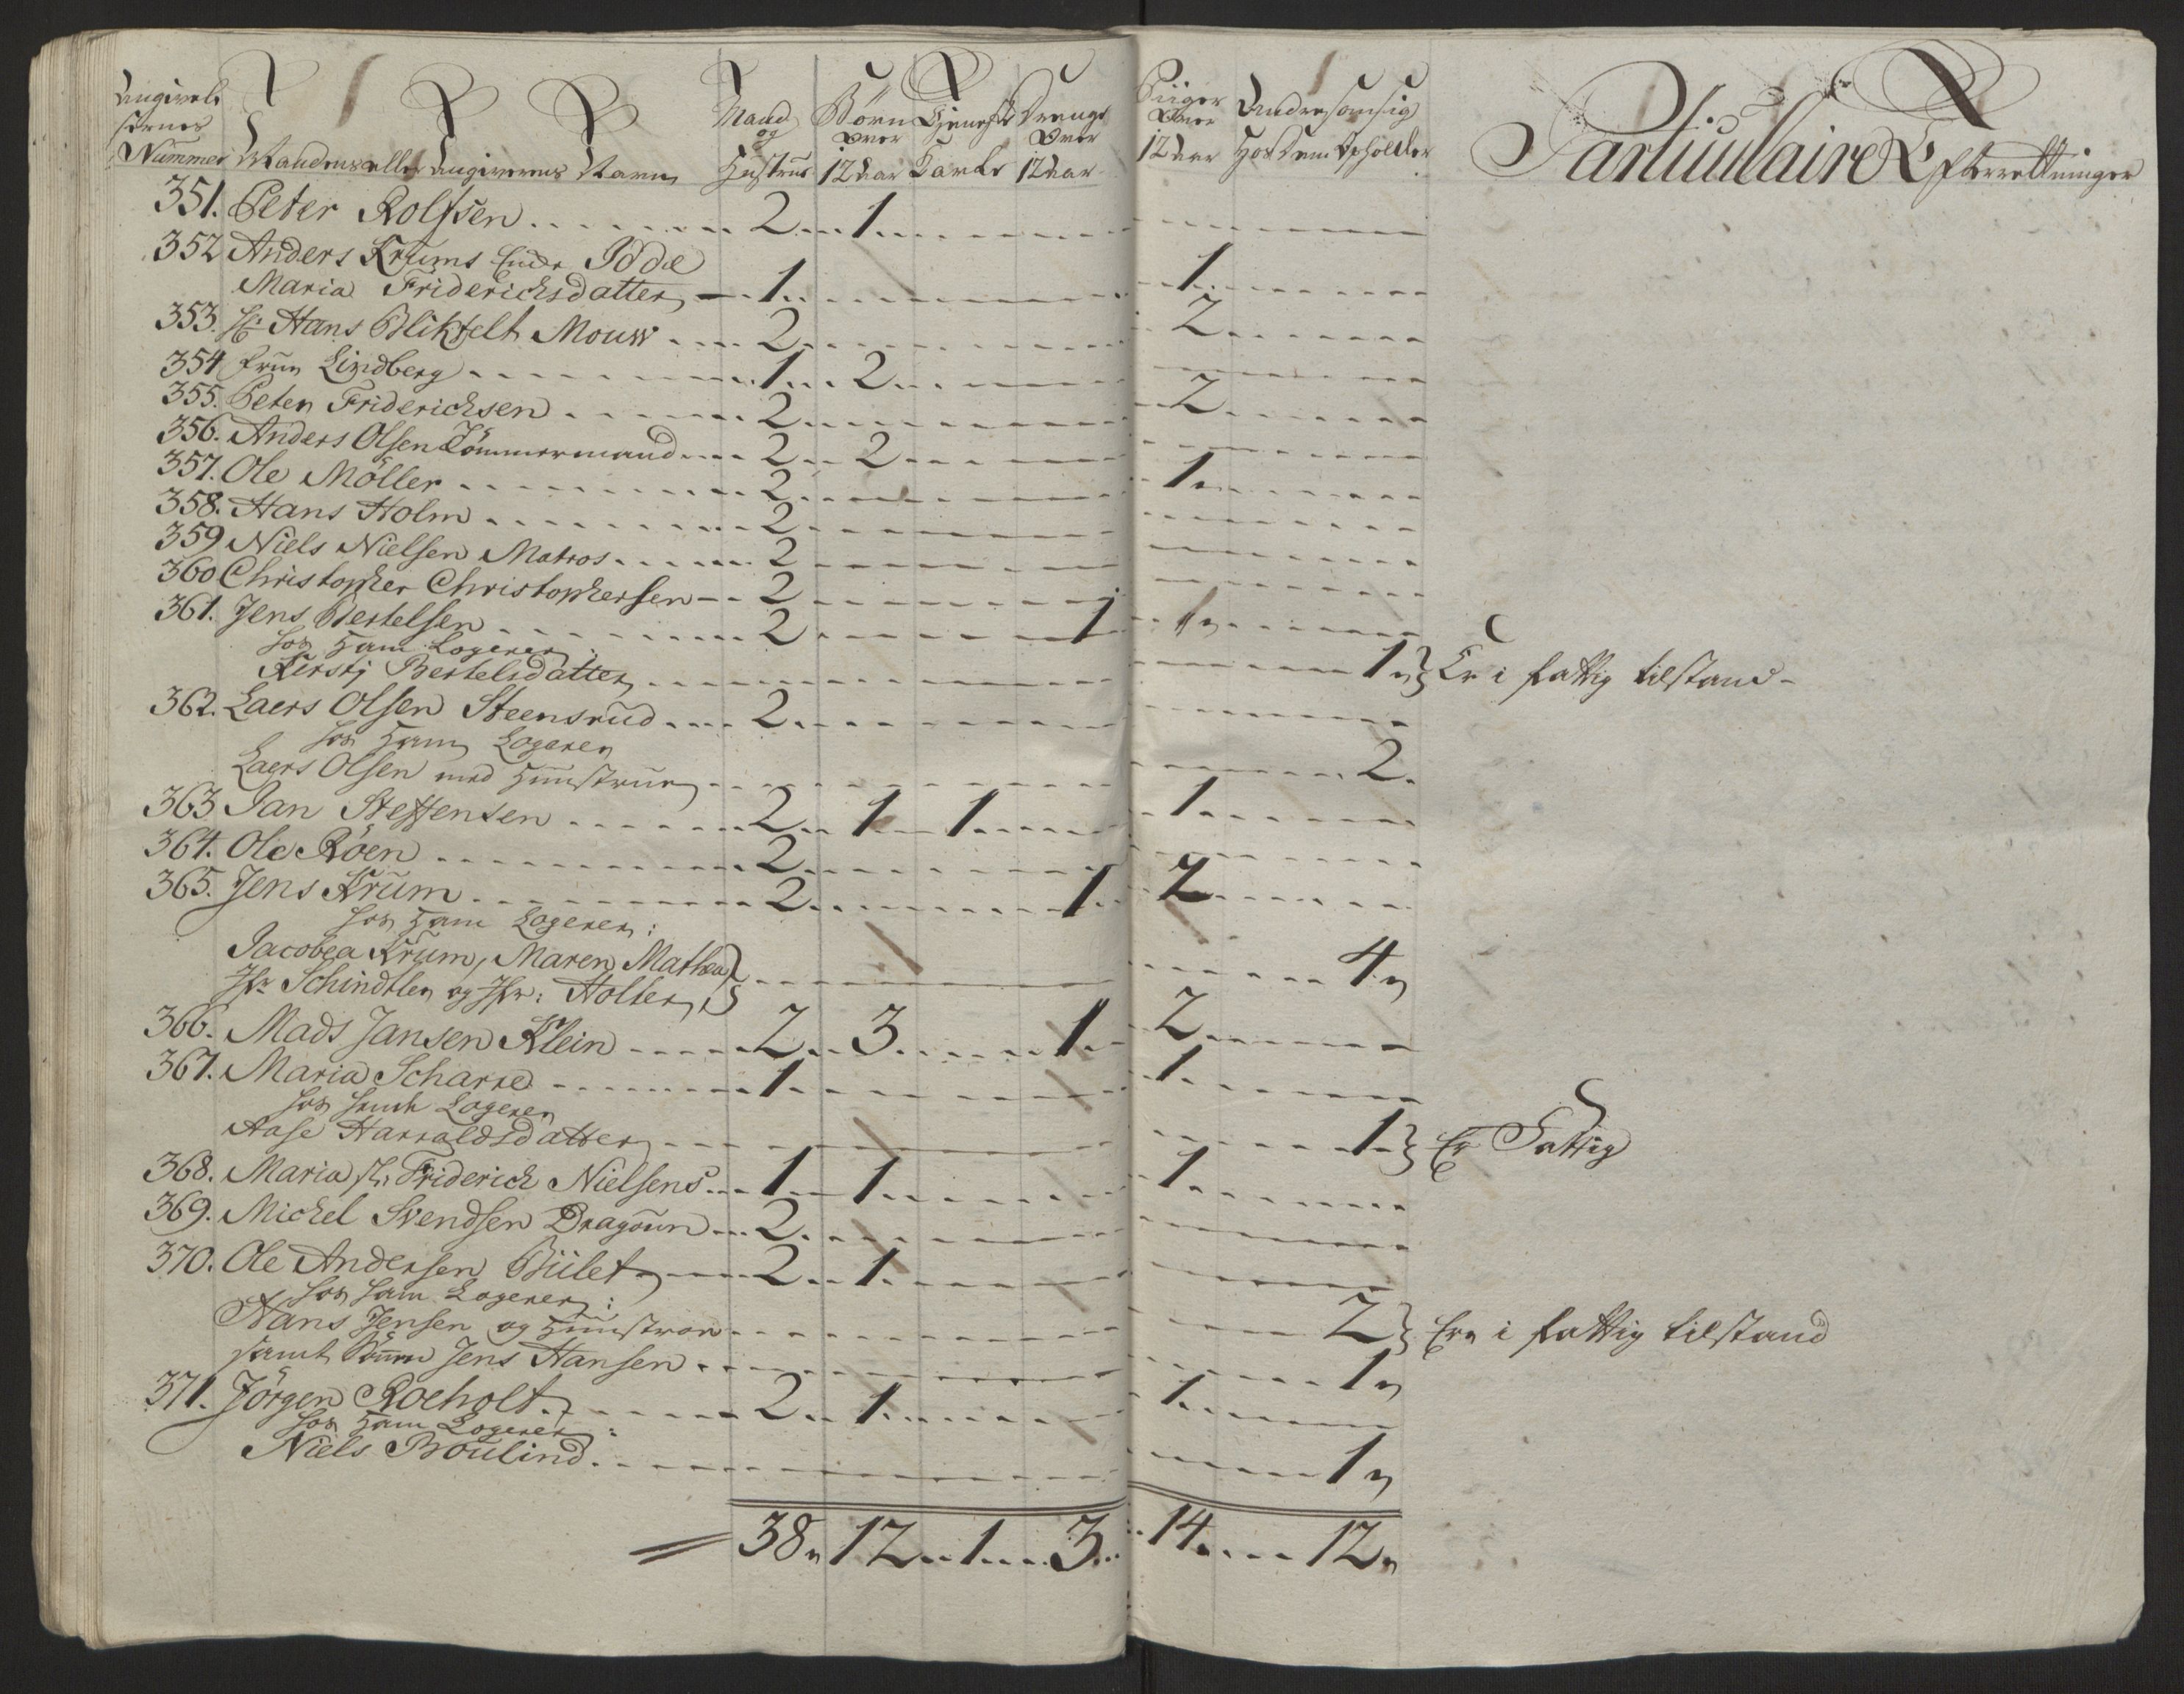 Angivel
sernes
Nummer Mandens eller Angiverens Navn Mand og Hustrue Børn over 12 Aar Tieneste Karle Drenge over 12 Aar Piiger over 12 Aar Andre som sig hos dem opholder Particulaire Efterretninger
351. Peter Rolfsen 2 1
352 Anders Krums Encke Idde
Maria Friderichsdatter 1 1
353. Hr Hans Bliktfelt Mouw 2 2
354 Frue Lindberg 1 2
355. Peter Friderichsen 2 2
356. Anders Olsen Tömmermand 2 2
357. Ole Möller 2 1
358. Hans Holm 2
359 Niels Nielsen Matros 2
360 Christopher Christophersen 2
361. Jens Bertelsen 2 1 1
hos ham Logerer:
Kirstj Bertelsdatter 1 Er i fattig tilstand
362. Laers Olsen Steensrud 2
hos ham Logerer
Laers Olsen med Huustrue 2
363 Jan Steffensen 2 1 1 1
364. Ole Röen 2
365. Jens Krum 2 1 2
hos ham Logerer:
Jacobea Krum, Maren Mathea
Jfr Schindtler og Jfr: Holter 4
366. Mads Jansen Klein 2 3 1 2
367. Maria Scharre 1 1
hos hende Logerer
Aase Harraldsdatter 1 Er Fattig
368. Maria Sl: Friderich Nielsens 1 1 1
369. Michel Svendsen Dragoun 2
370. Ole Andersen Büilet 2 1
hos ham Logerer:
Hans Jensen og Huustroe 2 Ere i fattig tilstand
samt Sönnen Jens Hansen 1
371. Jörgen Rocholt 2 1 1
hos ham Logerer:
Niels Boulind 1
38 12 1 3 14 12